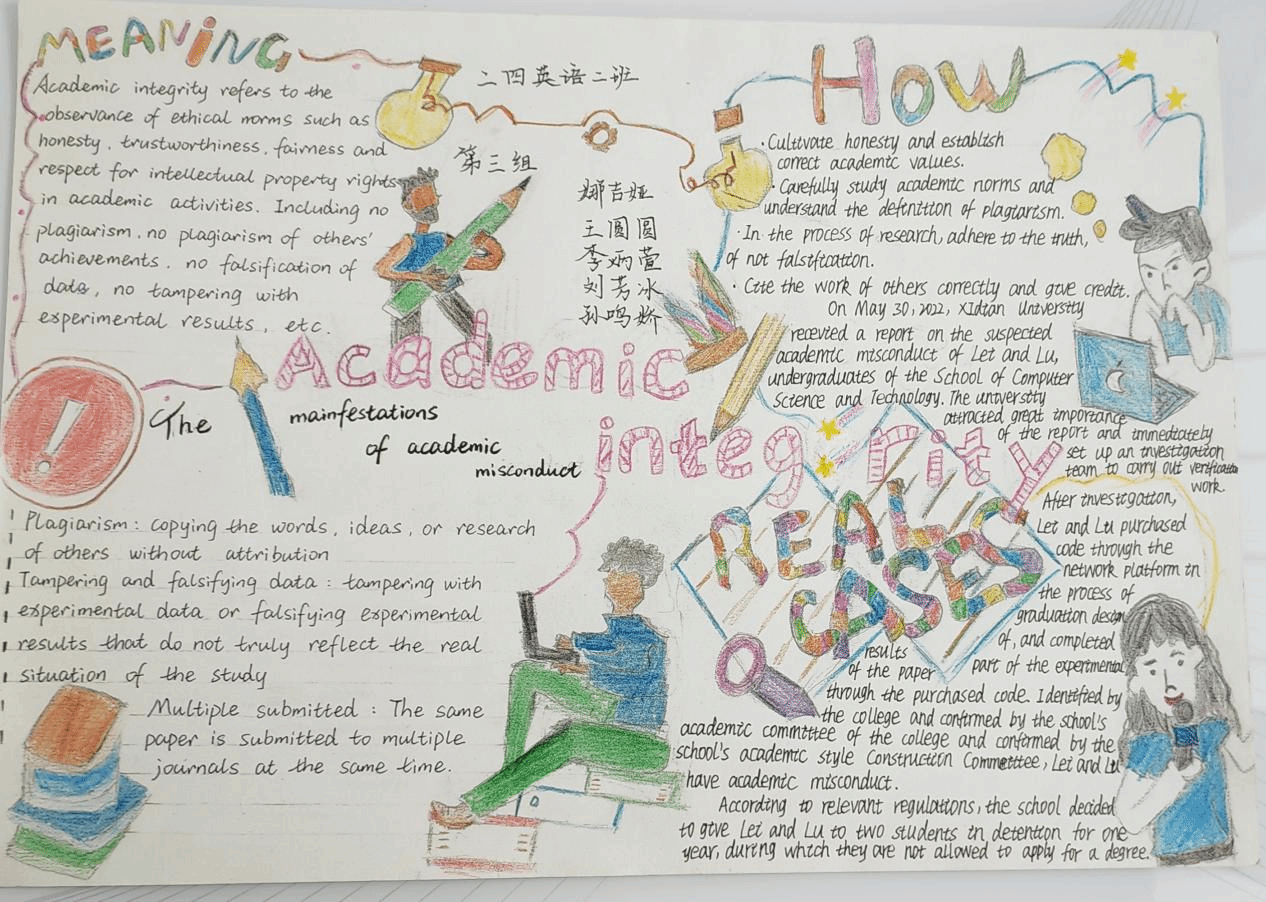 MEANING
Academic integrity refers to the
observance of ethical norms such as
honesty, trustworthiness, fairness and
respect for intellectual property rights
in academic activities. Including no
plagiarism, no plagiarism of others'
achievements, no falsification of
data, no tampering with
experimental results, etc.
二四英语二班
第三组
娜吉娅
王圆圆
李炳萱
刘芳冰
孙鸣娇
HOW
·Cultivate honesty and establish
correct academic values.
·Carefully study academic norms and
understand the definition of plagiarism.
·In the process of research, adhere to the truth,
of not falsification.
·Cite the work of others correctly and give credit.
Academic
integrity
The
mainfestations
of academic
misconduct
Plagiarism: copying the words, ideas, or research
of others without attribution
Tampering and falsifying data: tampering with
experimental data or falsifying experimental
results that do not truly reflect the real
situation of the study
Multiple submitted: The same
paper is submitted to multiple
journals at the same time.
REAL
CASES
On May 30, 2022, XIdian University
recevied a report on the suspected
academic misconduct of Lei and Lu,
undergraduates of the School of Computer
Science and Technology. The university
attracted great importance
of the report and immediateby
set up an investigation
team to carry out verification
work.
After investigation,
Lei and Lu purchased
code through the
network platform in
the process of
graduation design
of, and completed
part of the experimental
results
of the paper
through the purchased code. Identified by
the college and confirmed by the school's
academic committee of the college and confirmed by the
school's academic style Construction Committee, Lei and Lu
have academic misconduct.
According to relevant regulations, the school decided
to give Lei and Lu to two students in detention for one
year, during which they are not allowed to apply for a degree.